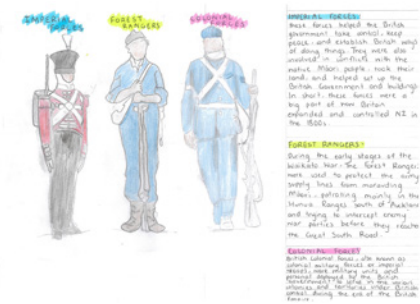 IMPERIAL
FORCES
FOREST
RANGERS
COLONIAL
FORCES
IMPERIAL FORCES:
these forces helped the British
government take control, keep
peace, and establish British ways
of doing things. They were also
involved in conflicts with the
native Māori people, took their
land, and helped set up the
British Government and buildings
In short, these forces were a
big part of how Britain
expanded and controlled NZ in
the 1800s.
FOREST RANGERS:
During the early stages of the
Waikato War. The Forest Rangers
were used to protect the army
supply lines from marauding
Māori - patrolling mainly in the
Hunua Ranges south of Auckland
and trying to intercept enemy
war parties before they reach
the Great South Road.
COLONIAL FORCES
British Colonial forces, also known as
colonial military forces or imperial
forces, were military units and
personnel deployed by the British
Government to serve in the various
colonies and territories under British
control during the era of the British